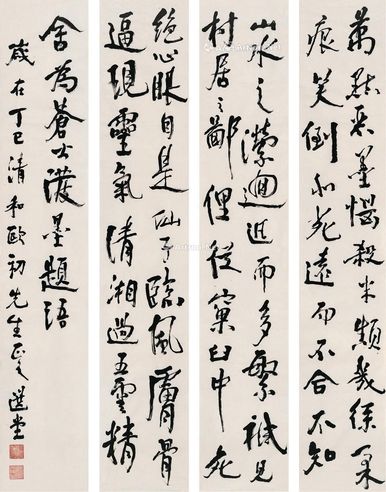 萬點惡墨惱殺米顛幾絲柔
痕笑倒北苑遠而不合不知
山水之瀠迴近而多繁祇見
村居之鄙俚從窠臼中死
絕心眼自是仙子臨風膚骨
逼現靈氣清湘過五雲精
舍為蒼公潑墨題語
歲在丁巳清和歐初先生正之選堂